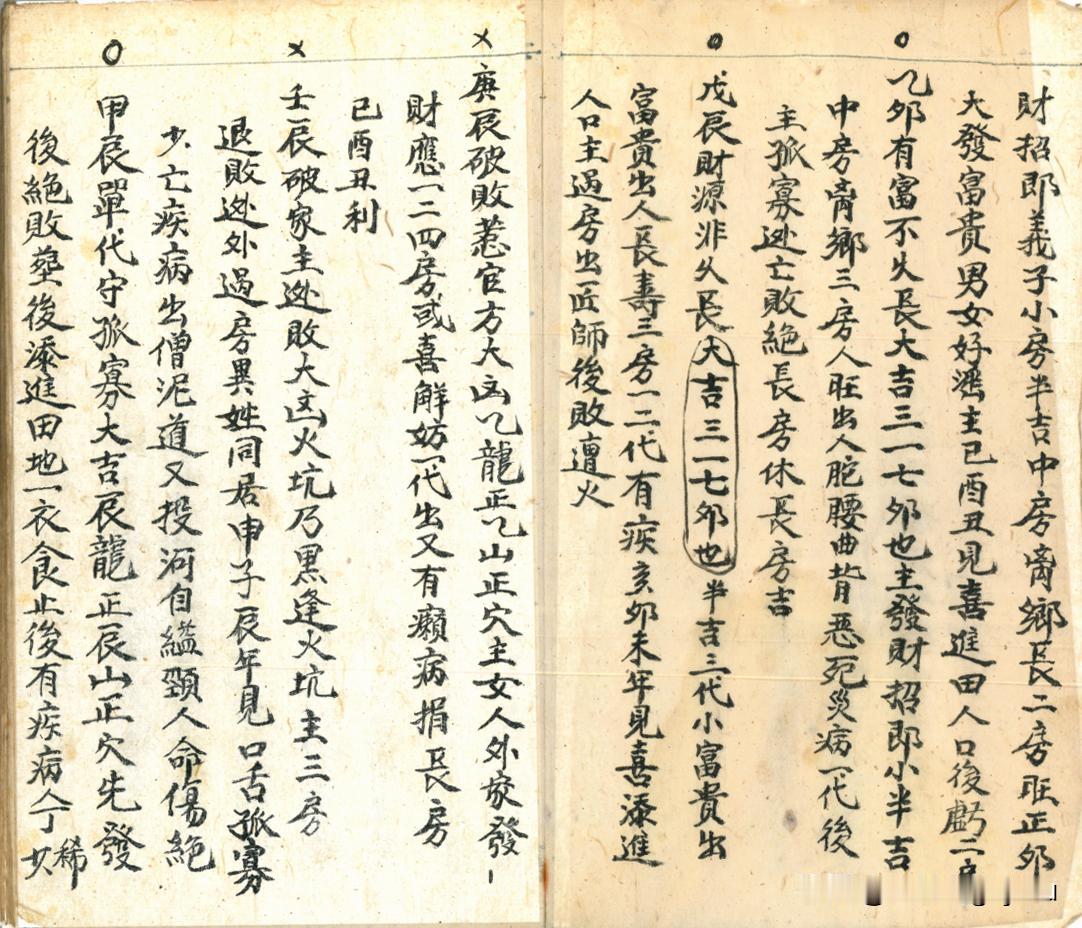 財招郎義子小房半吉中房离鄉長二房旺正夘
大發富貴男女好淫主巳酉丑見喜進田人口後虧二房
乙夘有富不久長大吉三一七夘也主發財招郎小半吉
中房离鄉三房人旺出人駝腰曲背惡死災病一代後
主孤寡逃亡敗絕長房休長房吉
戊辰財源非久長大吉三一七夘也半吉三代小富貴出
富貴出人長壽三房一二代有疾亥夘未年見喜添進
人口主過房出匠師後敗遭火
庚辰破敗惹官方大凶乙龍正乙山正穴主女人外家發
財應一二四房或喜解妨一代出又有癩病損長房
巳酉丑利
壬辰破家主逃敗大凶火坑乃黑逢火坑主三房
退敗逃外過房異姓同居申子辰年見口舌孤寡
少亡疾病出僧泥道又投河自縊頸人命傷絕
甲辰單代守孤寡大吉辰龍正辰山正穴先發
後絕敗塟後添進田地一衣食止後有疾病人丁稀少